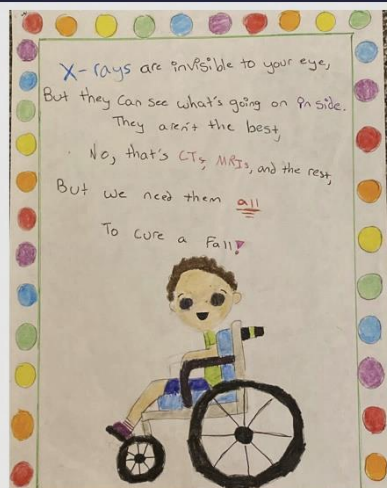 X-rays are invisible to your eye,
But they can see what's going on inside.
They aren't the best,
No, that's CTs, MRIs, and the rest,
But we need them all
To cure a Fall!